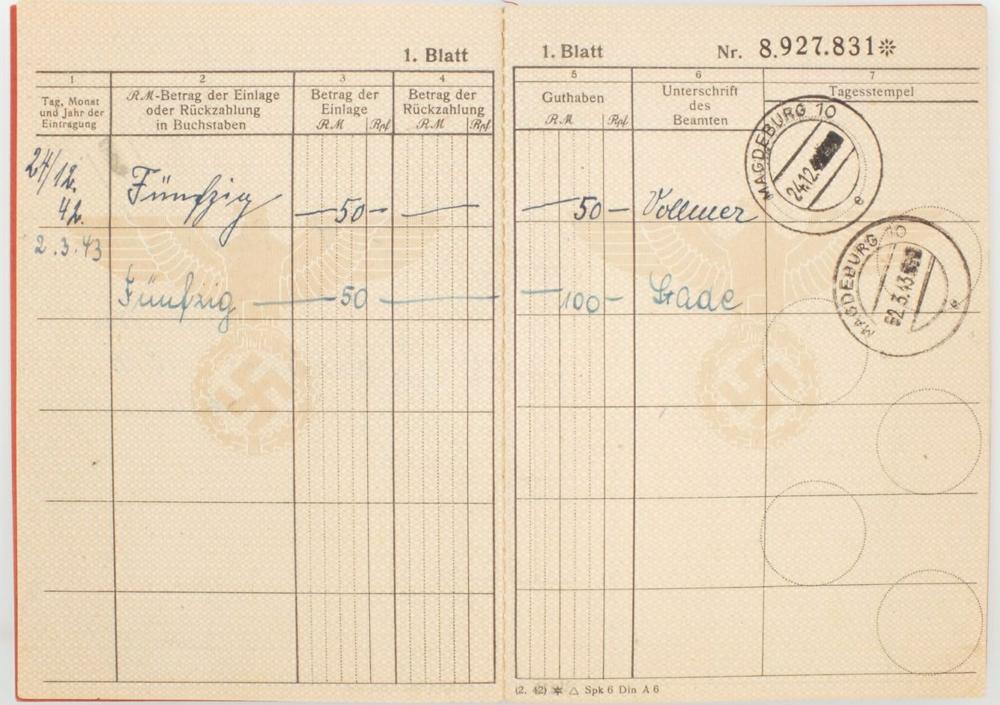 1. Blatt
1 2 3 4
Tag, Monat und Jahr der Eintragung
RM-Betrag der Einlage oder Rückzahlung in Buchstaben
Betrag der Einlage
RM Rpf
Betrag der Rückzahlung
RM Rpf
24/12. 42. Fünfzig — 50 — —
2.3.43 Fünfzig — 50 —
1. Blatt Nr. 8.927.831
5 6 7
Guthaben
RM Rpf
Unterschrift des Beamten
Tagesstempel
— 50 — Vollmer
MAGDEBURG 10
24.12.4
e
— 100 — Gade
MAGDEBURG 10
2.3.43
e
(2. 42) ✻ △ Spk 6 Din A 6